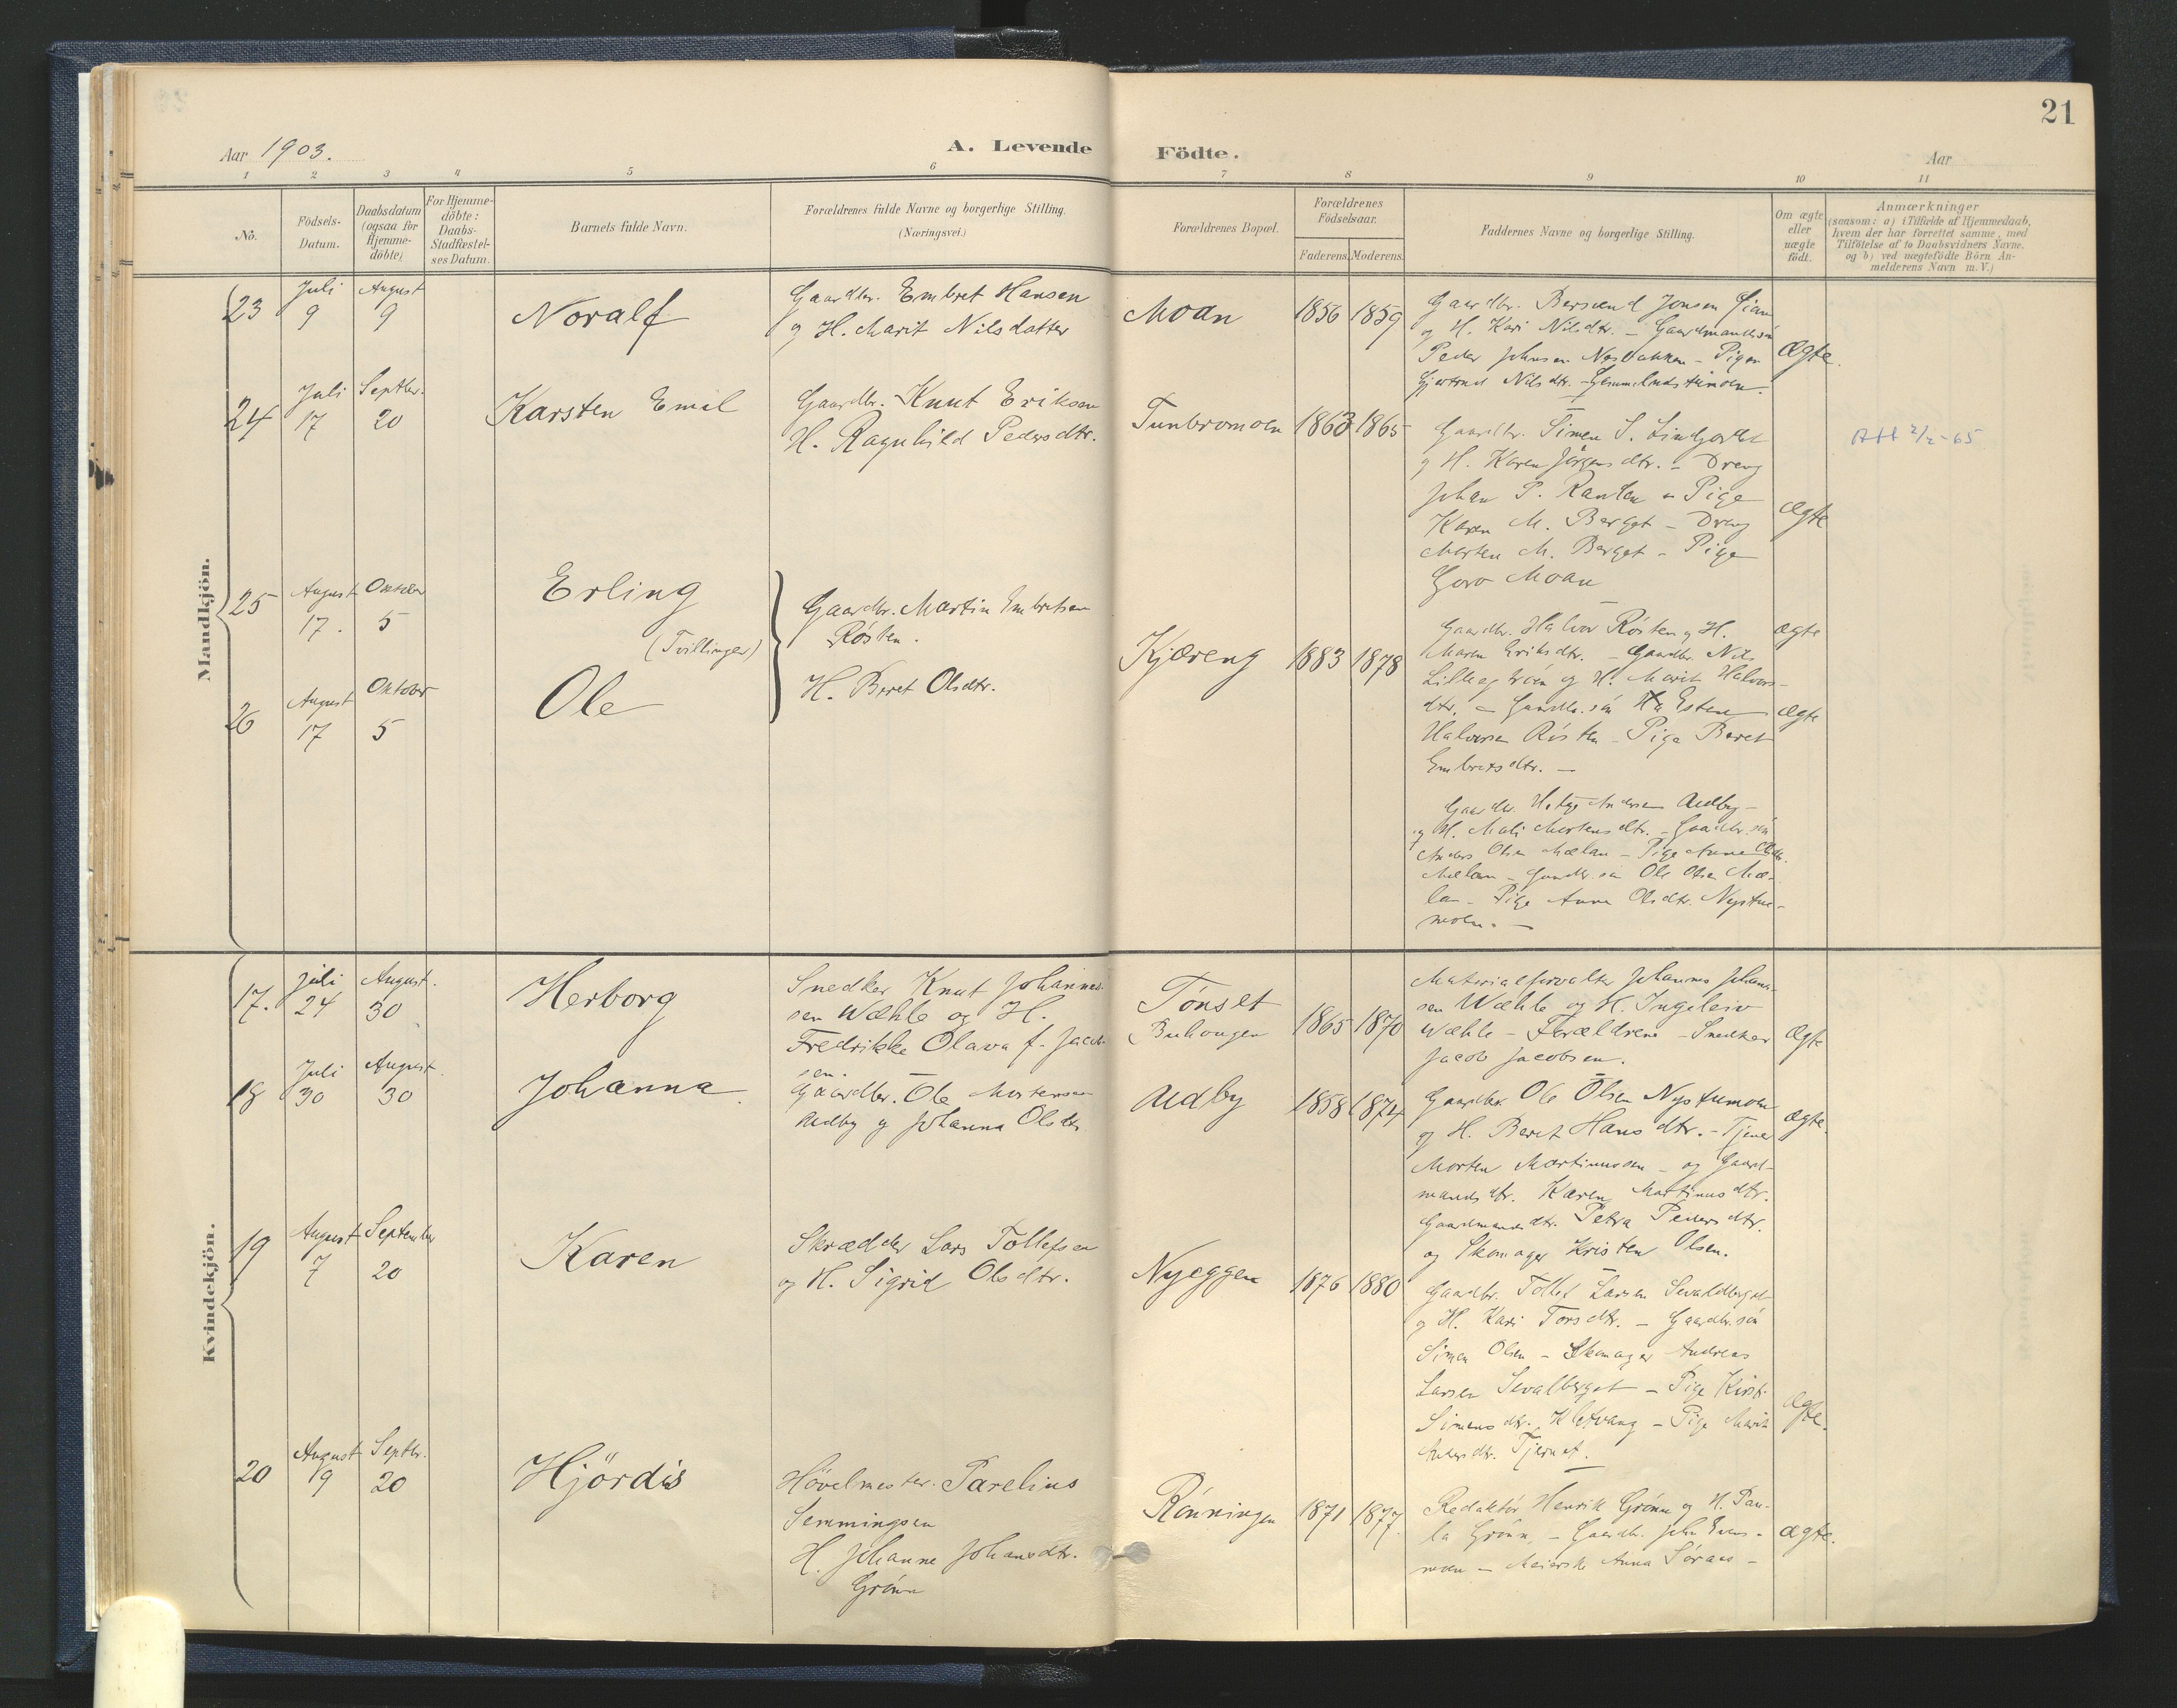 21
Aar 1903.
A. Levende Födte.
Aar
1 2 3 4 5 6 7 8 9 10 11
No.
Födsels-
Datum.
Daabsdatum
(ogsaa for
Hjemme-
döbte)
For Hjemme-
döbte:
Daabs-
Stadfæstel-
ses Datum.
Barnets fulde Navn.
Forældrenes fulde Navne og borgerlige Stilling.
(Næringsvei.)
Forældrenes Bopæl.
Forældrenes
Födselsaar.
Faderens. Moderens.
Faddernes Navne og borgerlige Stilling.
Om ægte
eller
uægte
födt.
Anmærkninger
(saasom: a) i Tilfælde af Hjemmedaab,
hvem der har forrettet samme, med
Tilföielse af to Daabsvidners Navne.
og b) ved uægtefödte Börn An-
melderens Navn m. V.)
Mandkjön.
23
Juli
9
August
9
Noralf
Gaardbr. Embret Hansen
og H. Marit Nilsdatter
Moan
1856 1859
Gaardbr. Bersvend Jonsen
og H. Kari Nilsdtr. - Gaardmandssön
Peder Johnsen Nesbakken - Pigen
Gjertrud Nilsdtr.
Ægte.
24
Juli
17
Septbr.
20
Karsten Emil
Gaardbr. Knut Eriksen
H. Ragnhild Pedersdtr.
Tunbromoen
1863 1865
Gaardbr. Simen S. Lindjordet
og H. Karen Jörgensdtr. - Dreng
Johan P. Rauten - Pige
Karen M. Berget - Dreng
Morten M. Berget - Pige
Goro Moan
Ægte
Att 2/2-65
25
August
17.
Oktober
5
Erling
(Tvillinger)
Gaardbr. Martin Embretsen
Rösten.
H. Beret Olsdtr.
Kjæreng
1883 1878
Gaardbr. Halvor Rösten og H.
Maren Eriksdtr. - Gaardbr. Nils
Lilleegg og H. Marit Halvors-
dtr. - Gaardbr.sön Esten
Halvorsen Rösten - Pige Beret
Embretsdtr. -
ægte
26
August
17
Oktober
5
Ole
ægte
Gaardbr. Helge Andersen Aedby -
og H. Mali Mortensdtr. - Gaardbr.sön
Anders Olsen Mælan - Pige Anne Olsdtr.
Mælan - Gaardbr.sön Ole Olsen Mæ-
lan - Pige Anne Olsdtr. Nystu-
moen. -
Kvindekjön.
17.
Juli
24
August.
30
Herborg
Snedker Knut Johannes-
sen Wæhle og H.
Fredrikke Olava f. Jacob-
sen.
Tönset
Buhougen
1865 1870
Materialforvalter Johannes Johannes-
sen Wæhle og H. Ingeleiv
Wæhle - Forældrene - Snedker
Jacob Jacobsen.
Ægte
18
Juli
30
August.
30
Johanna
Gaardbr. Ole Mortensen
Aedby og Johanna Olsdtr.
Aedby
1858 1874
Gaardbr. Ole Olsen Nystumoen
og H. Beret Hansdtr. - Tjener
Morten Martinussen - og Gaard-
mandsdtr. Karen Martinusdtr.
Gaardmandsdtr. Petra Pedersdtr.
og Skomager Kristen Olsen.
Ægte.
19
August
7
September
20
Karen
Skrædder Lars Tollefsen
og H. Sigrid Olsdtr.
Nyeggen
1876 1880
Gaardbr. Tollef Larsen Sevaldberget
og H. Kari Torsdtr. - Gaardbr.sön
Simen Olsen - Skomager Andreas
Larsen Sevalberget - Pige Kirsti
Simensdtr. Kletvang - Pige Marit
Andersdtr. Tjernet.
Ægte.
20
August
9
Septbr.
20
Hjördis
Hövelmester Parelius
Semmingsen
H. Johanne Johansdtr.
Grönn
Rönningen
1871 1877.
Redaktör Henrik Grönn og H. Pau-
la Grönn, - Gaardbr. John
moen - Meierske Anna
ægte.